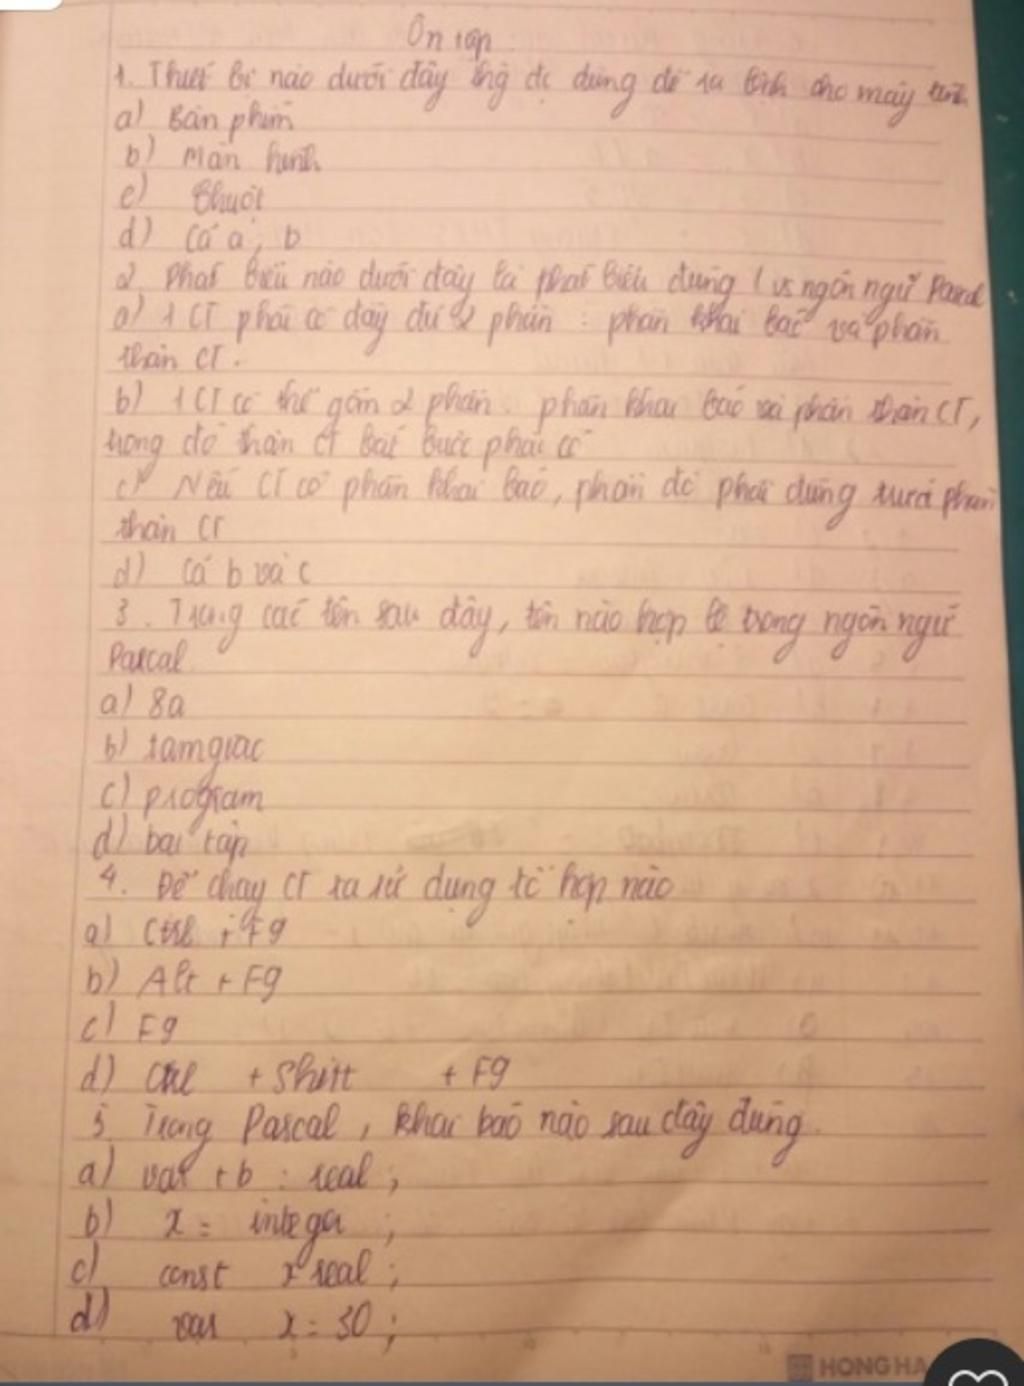 Ôn tập
1. Thiết bị nào dưới đây đc dùng để ra lệnh cho máy tính
a) Bàn phím
b) Màn hình
c) Chuột
d) Cả a, b
2. Phát biểu nào dưới đây là phát biểu đúng ( vs ngôn ngữ Pascal
a) 1 CT phải có đầy đủ 2 phần : phần khai báo và phần
thân CT.
b) 1 CT có thể gồm 2 phần : phần khai báo và phần thân CT,
trong đó thân CT bắt buộc phải có
c) Nếu CT có phần khai báo, phần đó phải đứng trước phần
thân CT
d) Cả b và c
3. Trong các tên sau đây, tên nào hợp lệ trong ngôn ngữ
Pascal
a) 8a
b) tamgiac
c) program
d) bai tap
4. Để chạy CT ta sử dụng tổ hợp nào
a) Ctrl + F9
b) Alt + F9
c) F9
d) Ctrl + Shitt + F9
5. Trong Pascal, khai báo nào sau đây đúng.
a) var tb : real ;
b) x = integer ;
c) const x real ;
d) var x = 30 ;
HONG HA